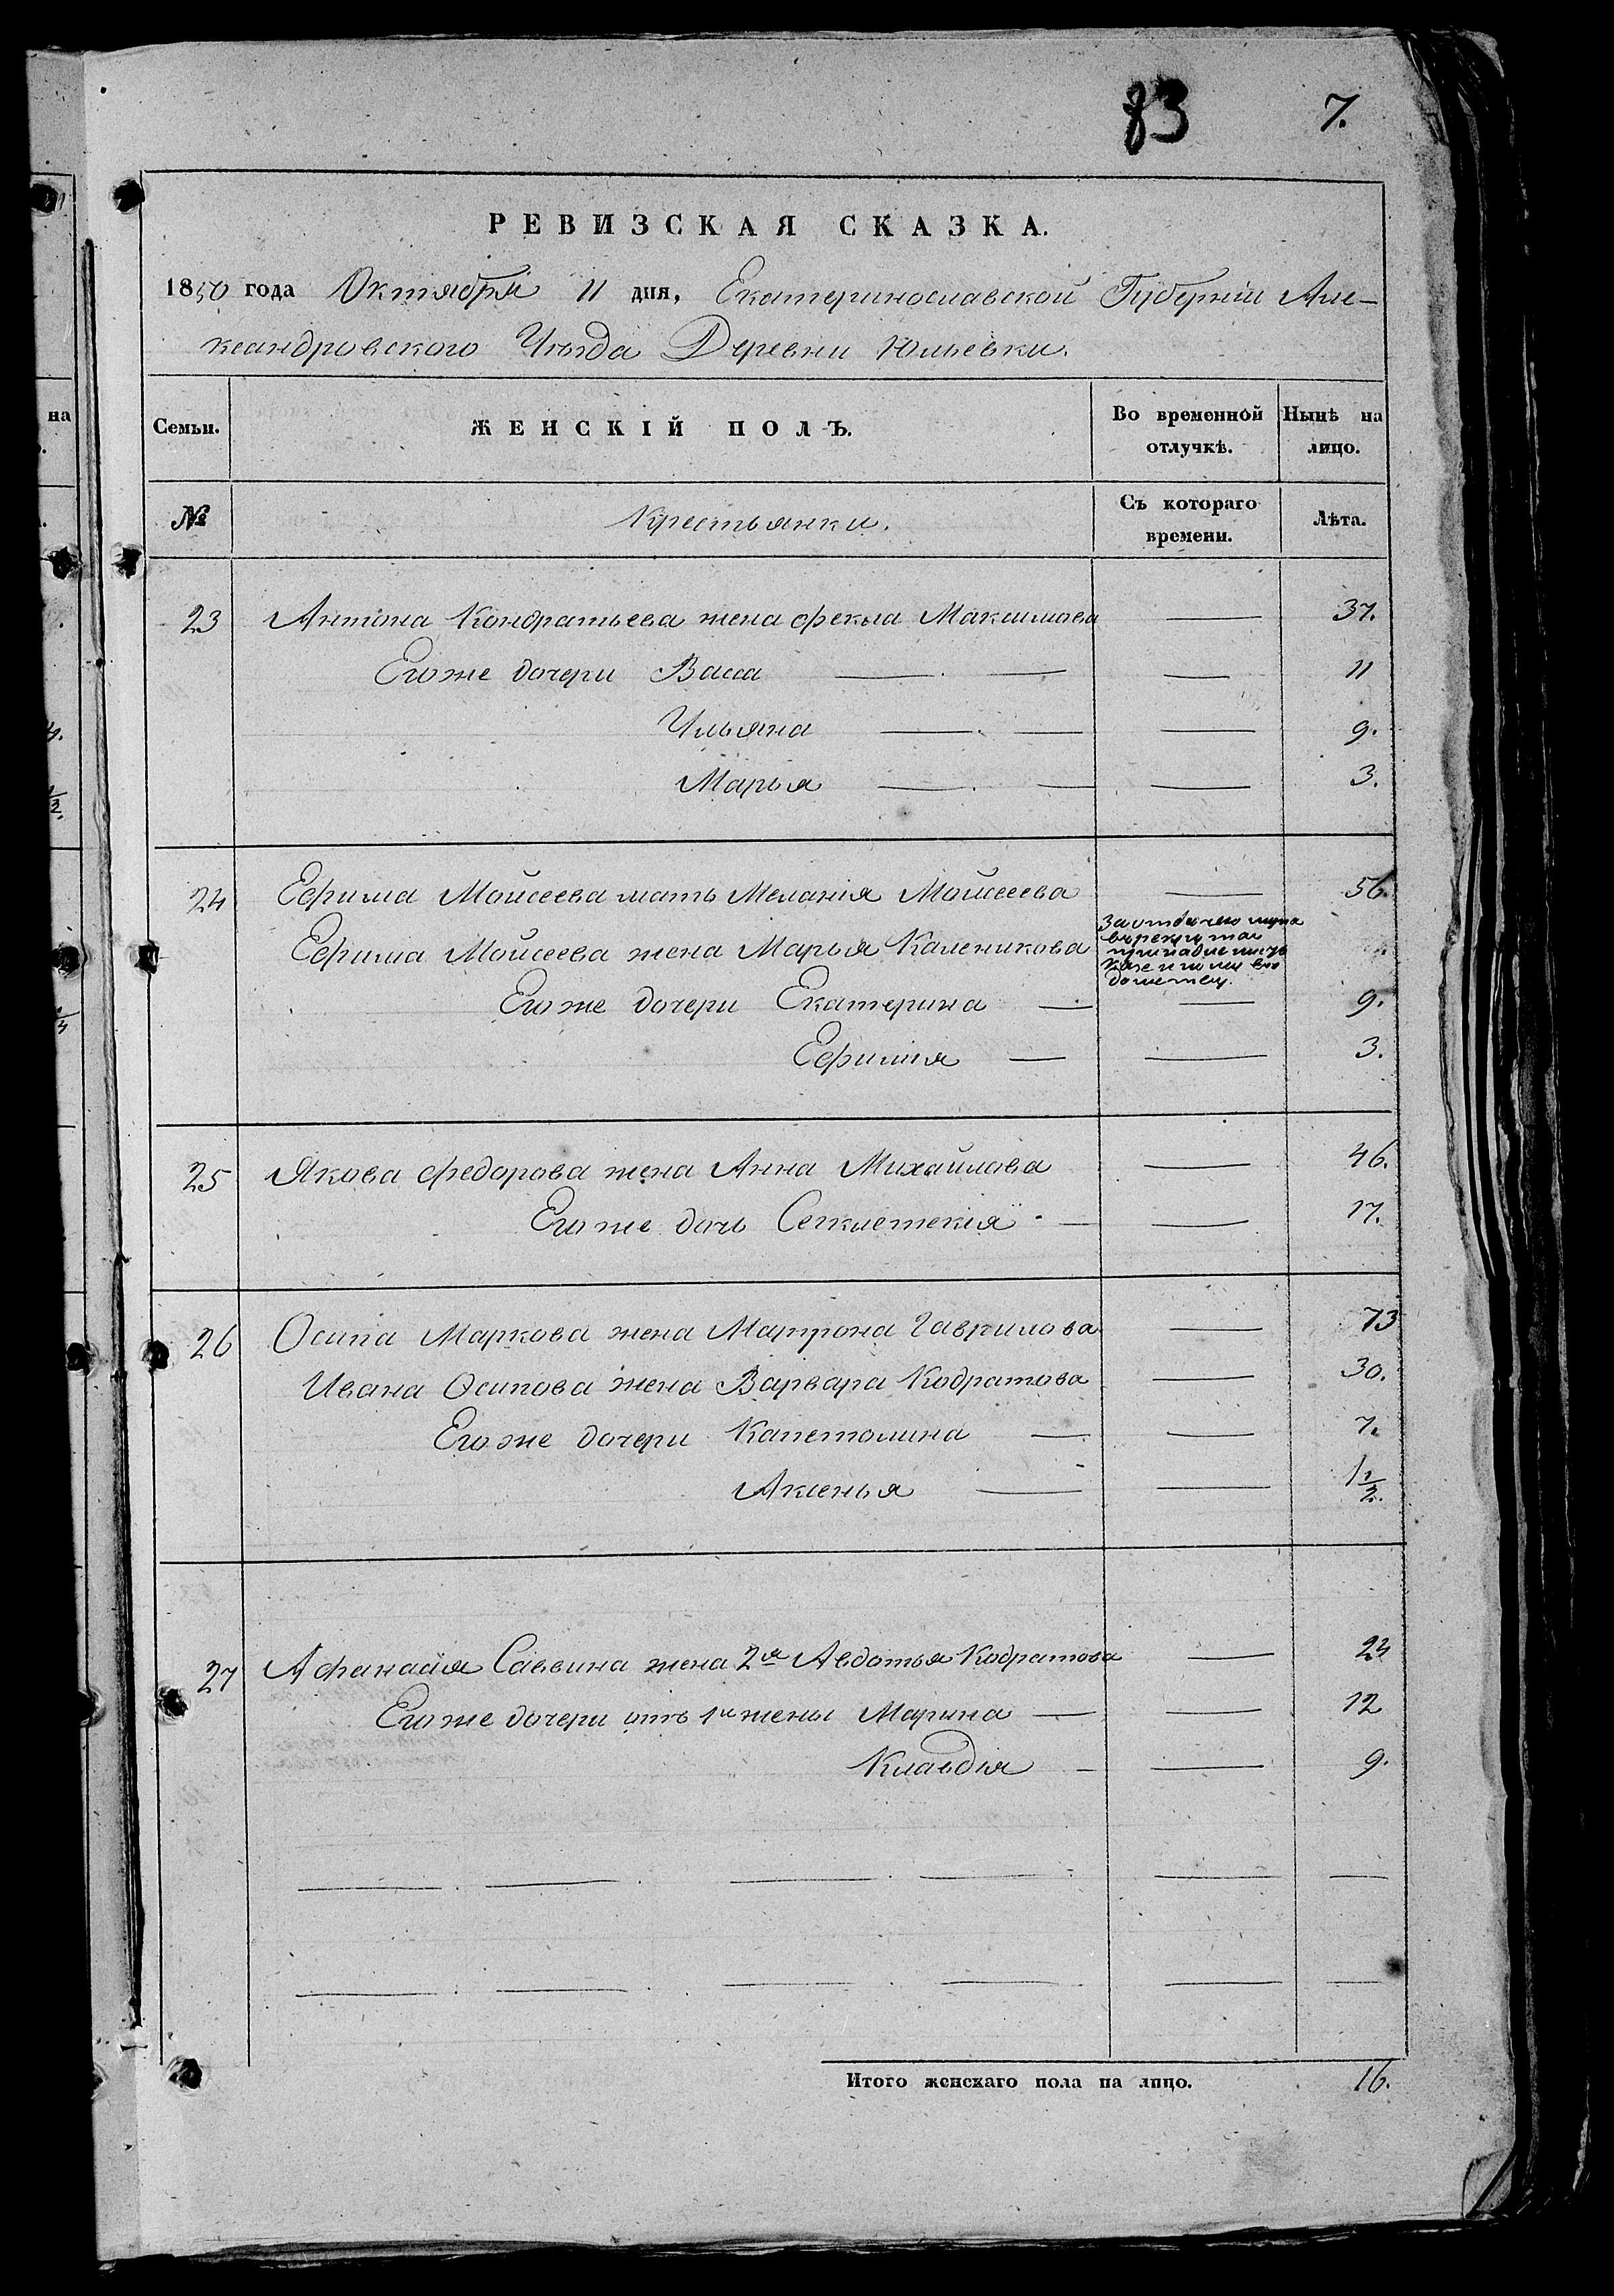 83 7.
РЕВИЗСКАЯ СКАЗКА.
1850 года Октября 11 дня, Екатеринославской Губерніи Але-
ксандровского Уѣзда Деревни Юльевки.
Семьи. ЖЕНСКІЙ ПОЛЪ. Во временной отлучкѣ. Нынѣ на лицо.
№ Крестьянки. Съ котораго времени. Лѣта.
23 Антона Кондратьева жена Фекла Максимова — 37.
Его же дочери Васса — — — 11
Ульяна — — — 9.
Марья — — — 3.
24 Ефима Мойсеева мать Меланія Мойсеева — 56.
Ефима Мойсеева жена Марья Каленикова За отдачею мужа
въ рекруты
принадлежитъ
казенному
Его же дочери Екатерина — — 9.
Ефимія — — 3.
25 Якова Федорова жена Анна Михайлова — 46.
Его же дочь Секлетекія — — 17.
26 Осипа Маркова жена Матрона Гаврилова — 73
Ивана Осипова жена Варвара Кодратова — 30.
Его же дочери Капетолина — — 7.
Аксенья — — 1 1/2.
27 Афанасія Саввина жена 2я Авдотья Кодратова — 24
Его же дочери отъ 1й жены Марина — — 12
Клавдія — — 9.
— — — — — —
— — — — — —
Итого женскаго пола на лицо. 16.